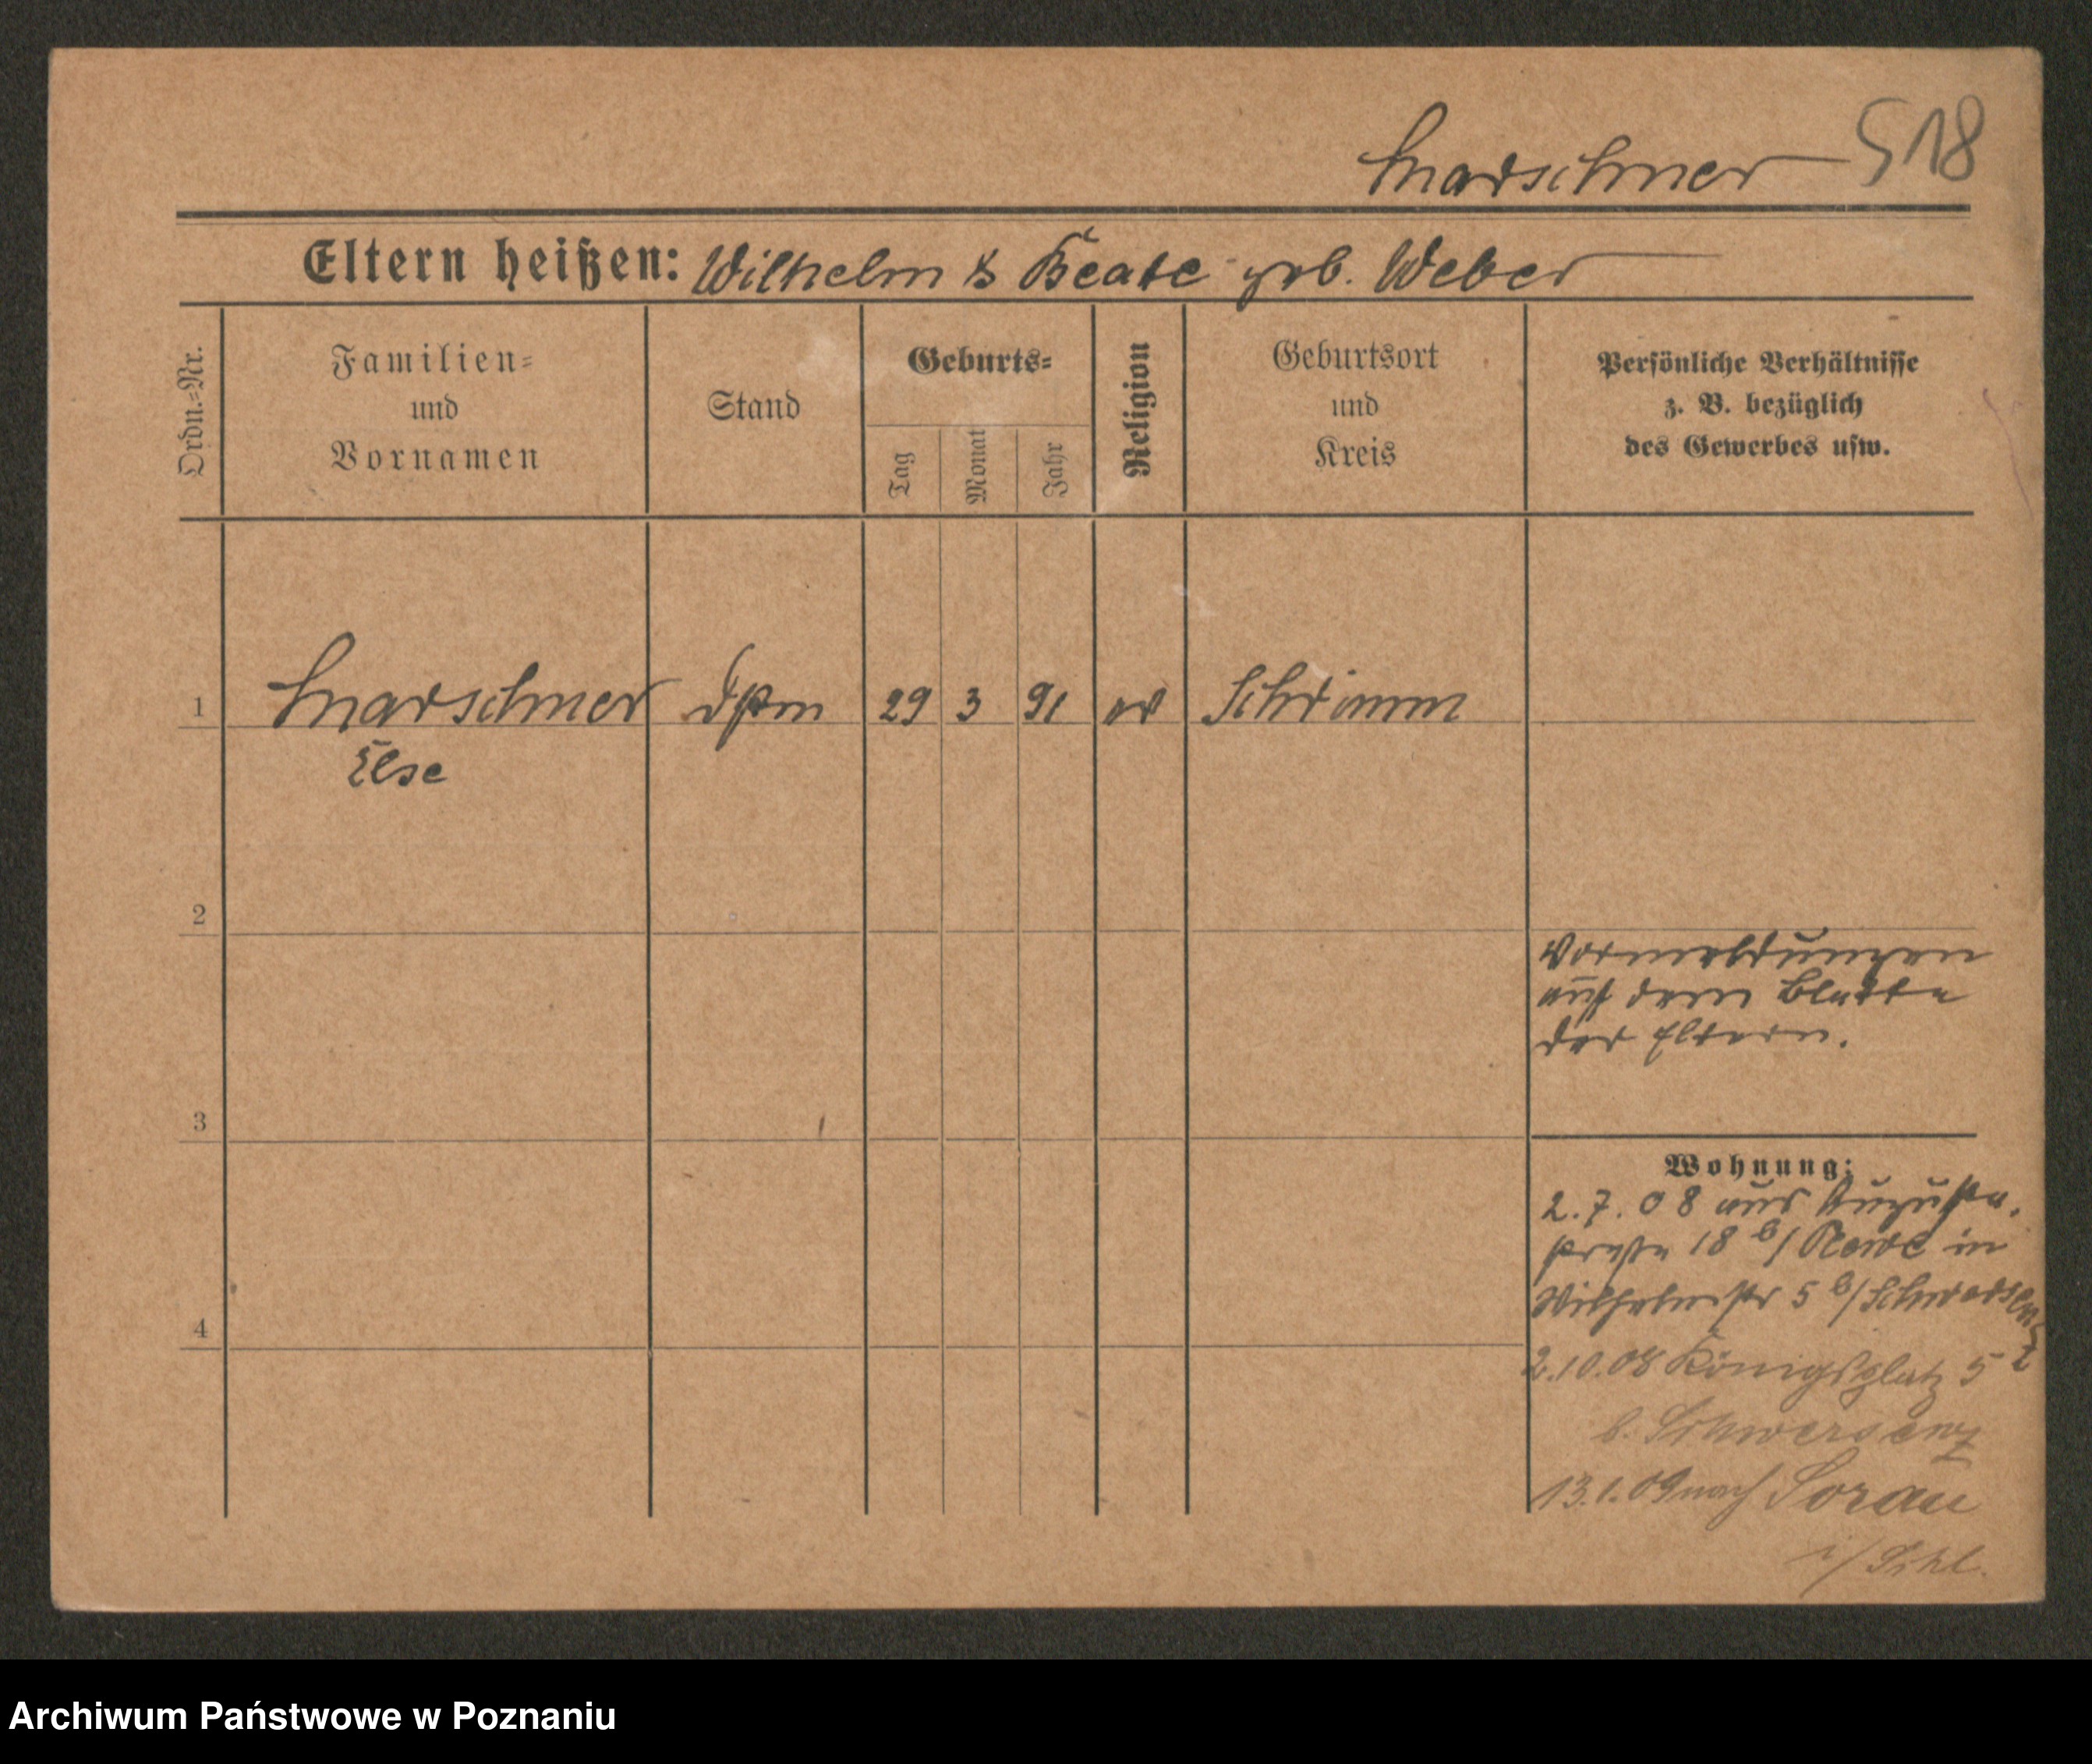 Marschner 518
Eltern heißen: Wilhelm & Beate geb. Weber
Ordn.-Nr.
Familien-
und
Vornamen
Stand
Geburts-
Tag
Monat
Jahr
Religion
Geburtsort
und
Kreis
Persönliche Verhältnisse
z. B. bezüglich
des Gewerbes usw.
1 Marschner 29 3 91 ev Schrimm
Else
2
Vormeldungen
auf dem Blatte
der Eltern.
3
Wohnung:
2.7.08 aus Augusta-
straße 18 b/ in
Wilhelmstr 5 b/ Schwersenz
4
2.10.08 Königsplatz 5
b. Schwersenz
13.1.09 nach Sorau
i/ Schl.
Archiwum Państwowe w Poznaniu